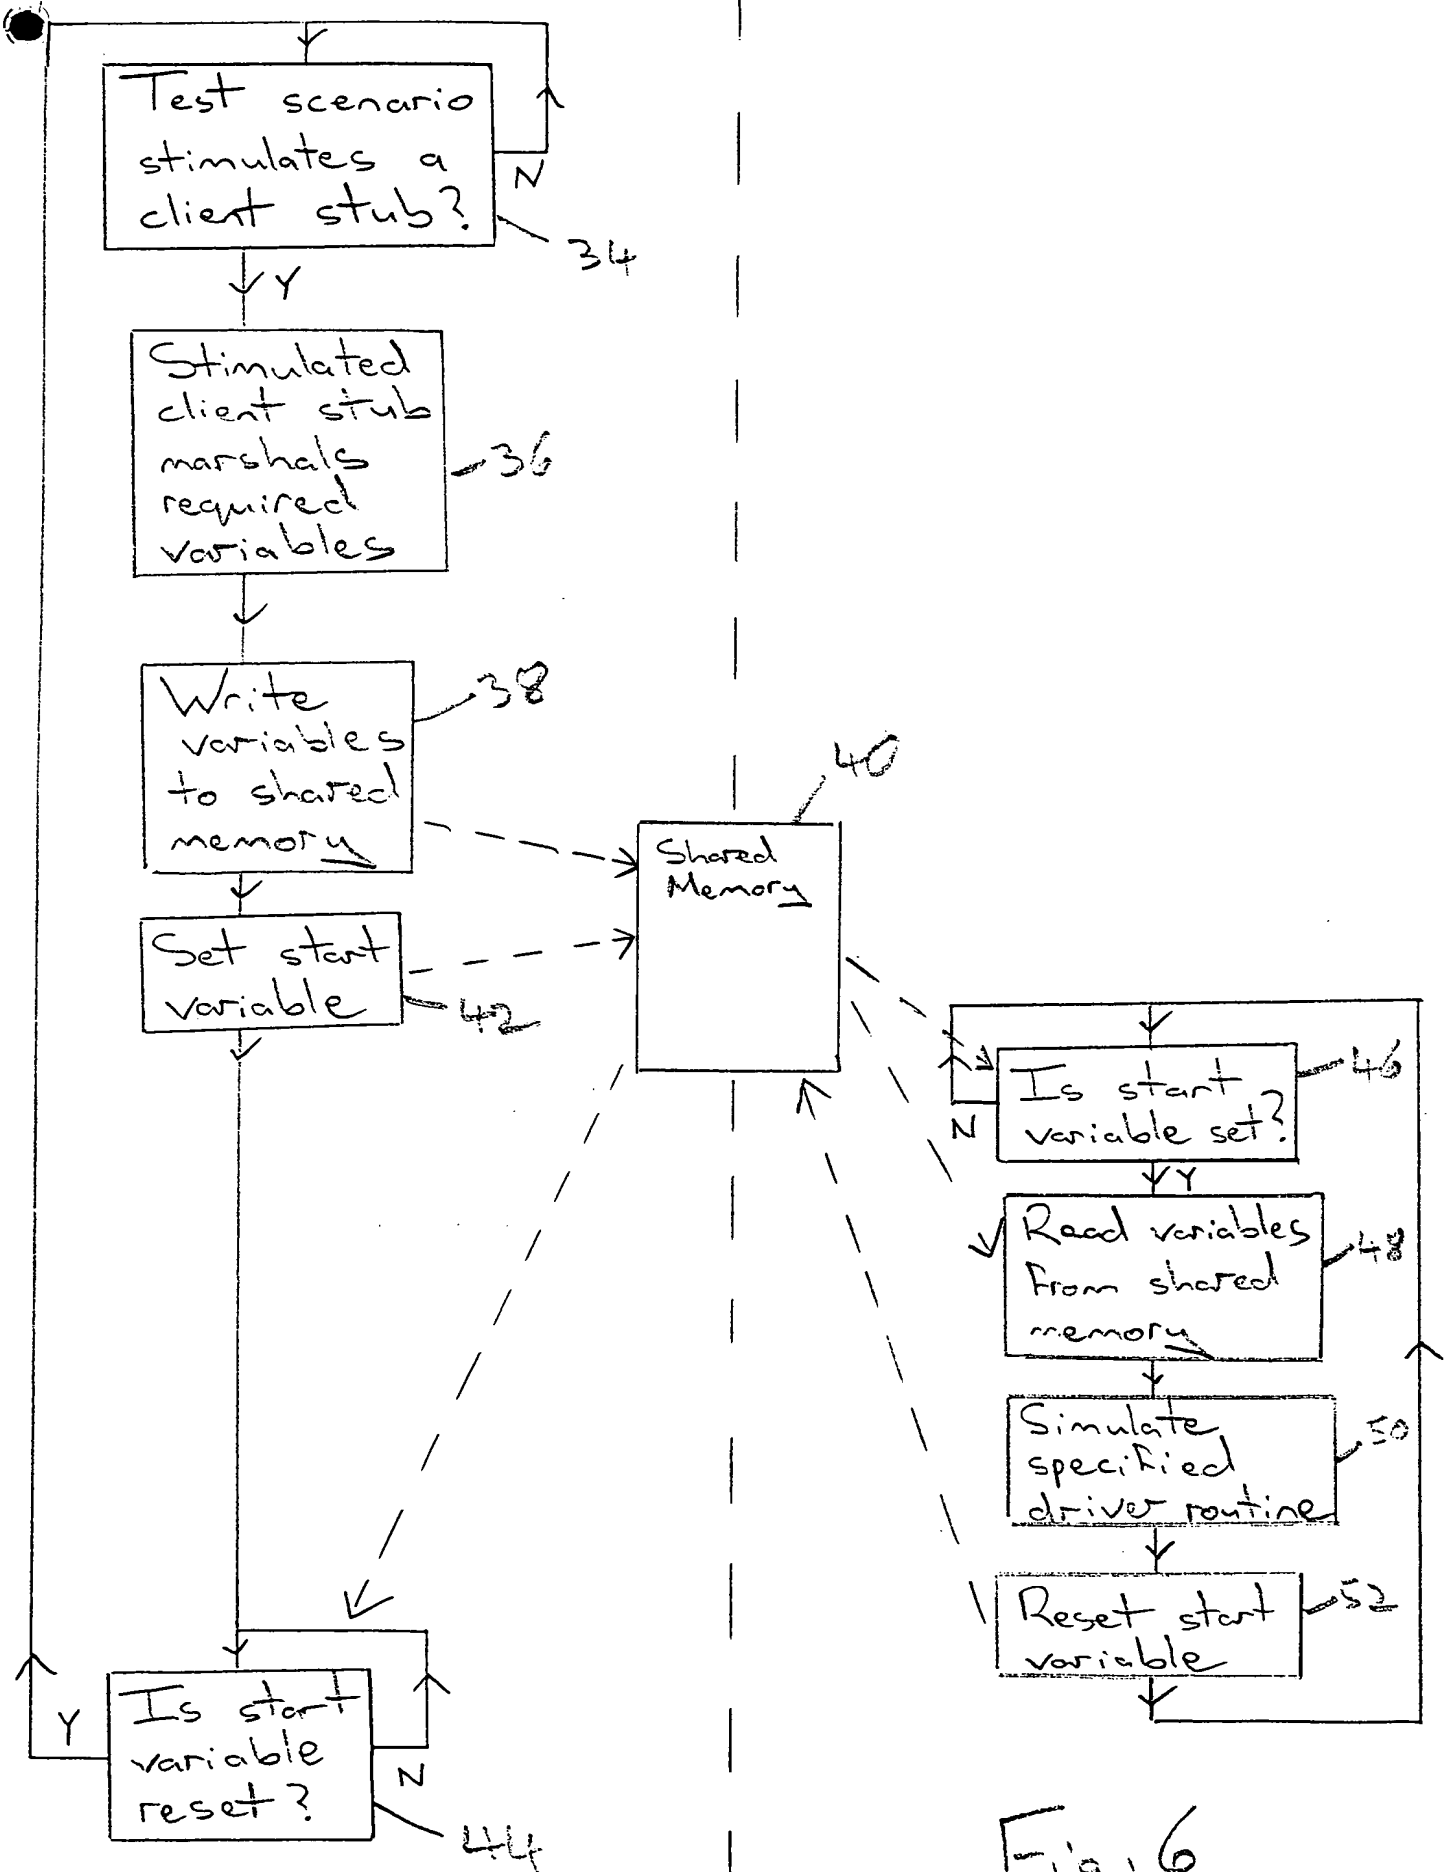 Test scenario
stimulates a
client stub?
N
34
Y
Stimulated
client stub
marshals
required
variables
36
Write
variables
to shared
memory
38
40
Shared
Memory
Set start
variable
42
Is start
variable set?
46
N
Y
Read variables
from shared
memory
48
Simulate
specified
driver routine
50
Reset start
variable
52
Is start
variable
reset?
Y
N
44
Fig. 6